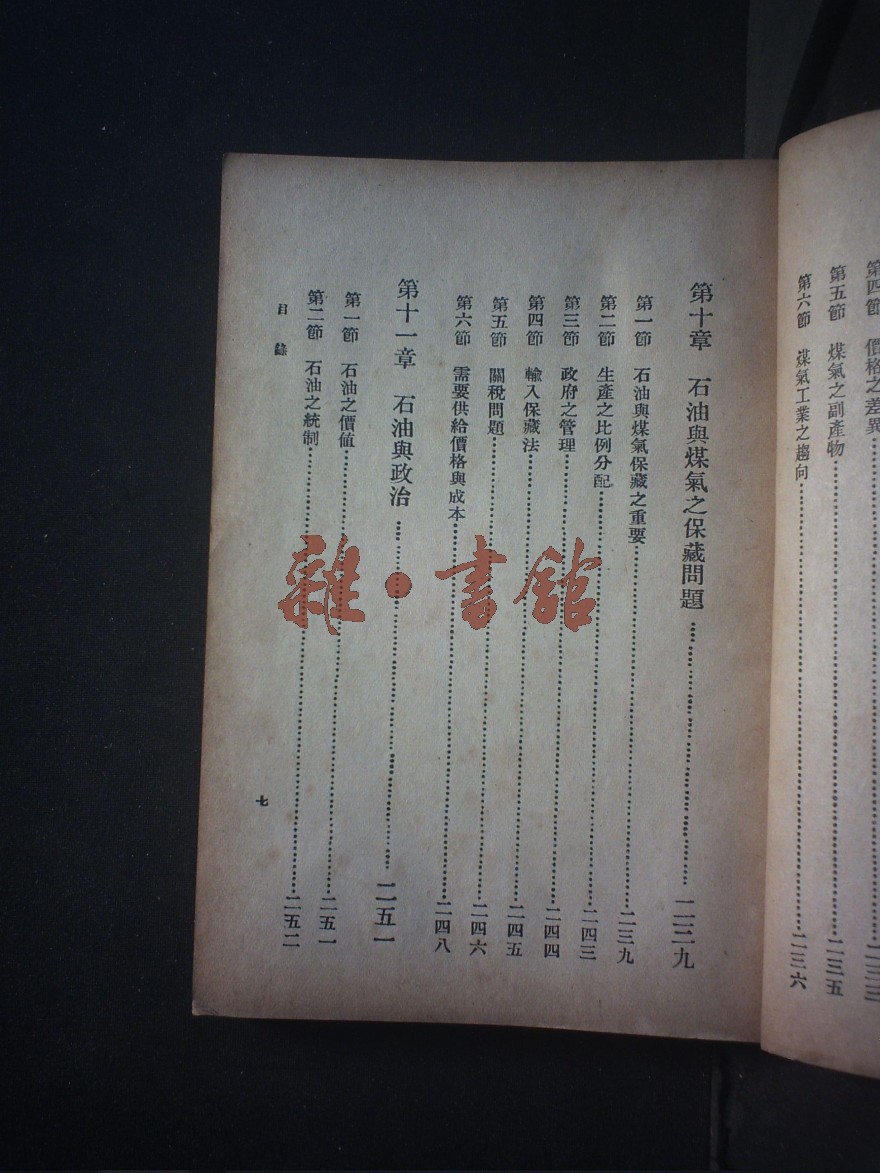 第四節　價格之差異……二三三
第五節　煤氣之副產物……二三五
第六節　煤氣工業之趨向……二三六
第十章　石油與煤氣之保藏問題……二三九
第一節　石油與煤氣保藏之重要……二三九
第二節　生產之比例分配……二四三
第三節　政府之管理……二四四
第四節　輸入保藏法……二四五
第五節　關稅問題……二四六
第六節　需要供給價格與成本……二四八
第十一章　石油與政治……二五一
第一節　石油之價值……二五一
第二節　石油之統制……二五二
目錄
七
雜·書館